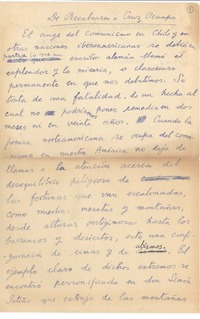 ①
De Recabarren a Cruz Ocampo
El auge del comunismo en Chile y en
otras naciones iberoamericanas se debió a
escritor alemán llamó el
esplendor y la miseria, o claroscuro
permanente en que nos debatimos. Se
trata de una fatalidad, de un hecho al
cual no podremos poner remedio en dos
meses ni en veinte años. Cuando la
prensa norteamericana se ocupa del comu-
nismo en nuestra América no deja de
llamar la atención acerca del
desequilibrio peligroso de
las fortunas que van escalonadas,
como nuestras mesetas y montañas,
desde alturas vertiginosas hasta los
barrancos y desiertos, esta una confi-
guración de cimas y de abismos. El
ejemplo claro de dichos extremos se
encontró personificado en don Simón
Patiño que extrajo de las montañas